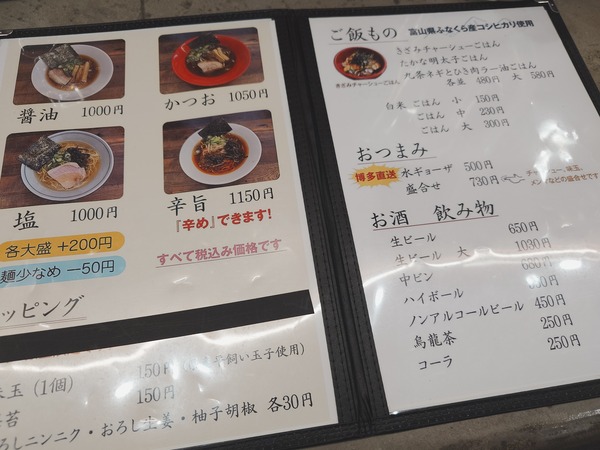 醤油 1000円
かつお 1050円
塩 1000円
辛旨 1150円
『辛め』できます!
各大盛 +200円
麺少なめ ー50円
すべて税込み価格です
ッピング
玉 (1個) 150円
飼い玉子使用)
150円
ろしニンニク・おろし生姜・柚子胡椒 各30円
ご飯もの 富山県ふなくら産コシヒカリ使用
きざみチャーシューごはん
きざみチャーシューごはん
たかな明太子ごはん
九条ネギとひき肉ラー油ごはん
各並 480円 大 580円
白米 ごはん 小 150円
ごはん 中 230円
ごはん 大 300円
おつまみ
博多直送 水ギョーザ 500円
盛合せ 730円
メンマなどの盛合せです
お酒 飲み物
生ビール 650円
生ビール 大 1030円
中ビン
ハイボール
ノンアルコールビール 450円
烏龍茶 250円
コーラ 250円